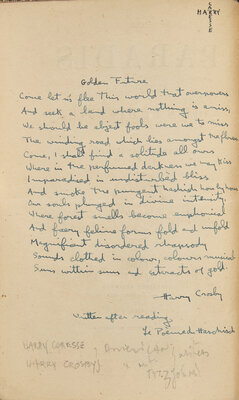 HARRY
CARESSE
Golden Future
Come let us flee this world that overpowers
And seek a land where nothing is amiss,
We should be abject fools were we to miss
The winding road which lies amongst the flowers
Come, I shall find a solitude all ours
Where in the perfumed darkness we may kiss
Imparadised in undisturbed bliss
And smoke the pungent hashish hour by hour
Our souls plunged in divine intensity,
Where forest smells become euphonical
And faery feline forms fold and unfold
Magnificent disordered rhapsody
Sounds clothed in colour, colours musical
Suns within suns and cataracts of gold.
Harry Crosby
written after reading
Le Poeme du Haschisch
HARRY CARESSE
HARRY CROSBY